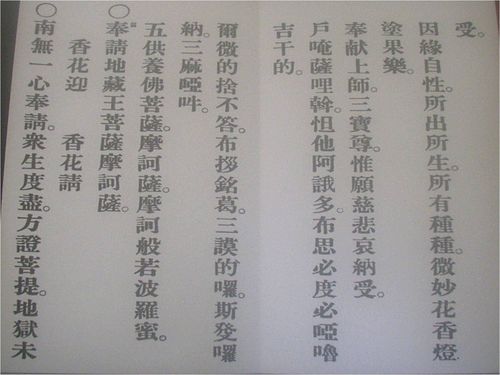 受。
因緣自性。所出所生。所有種種。微妙花香燈
塗果樂。
奉献上師。三寶尊。惟願慈悲哀納受。
戶唵薩哩斡。怛他阿誐多。布思必度必啞嚕
吉干的。
爾微的捨不答。布拶銘葛。三謨的囉。斯癹囉
納。三麻啞吽。
五供養佛菩薩。摩訶薩。摩訶般若波羅蜜。
〇奉請地藏王菩薩摩訶薩。
香花迎 香花請
〇南無一心奉請。衆生度盡。方證菩提。地獄未